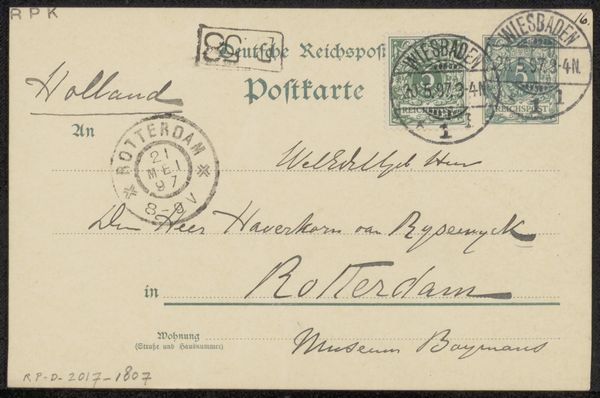 RPK
P. 53
16.
Deutsche Reichspost
Postkarte
WIESBADEN
20.5.97.3-4N.
1
WIESBADEN
20.5.97.3-4N.
1
5
REICHSPOST
Holland
An
ROTTERDAM
21
MEI
97
8-9V
WelEdelGeb Heer
Den Heer Haverkorn van Rysewyck
in Rotterdam
Wohnung
(Straße und Hausnummer)
Museum Boymans
RP-D-2017-1807